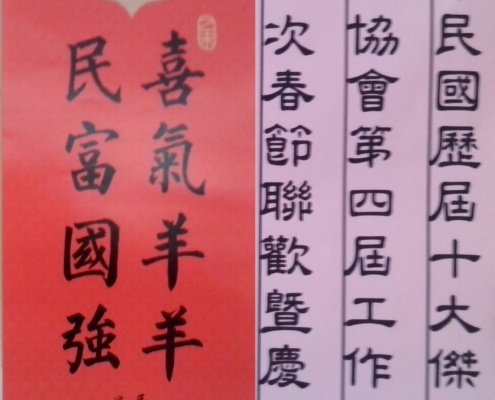 喜氣羊羊
民富國強
民國歷屆十大傑
協會第四屆工作
次春節聯歡暨慶